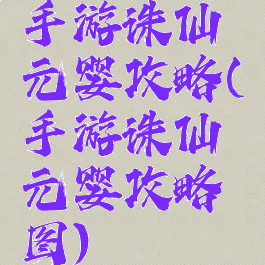 手游诛仙
元婴攻略(
手游诛仙
元婴攻略
图)